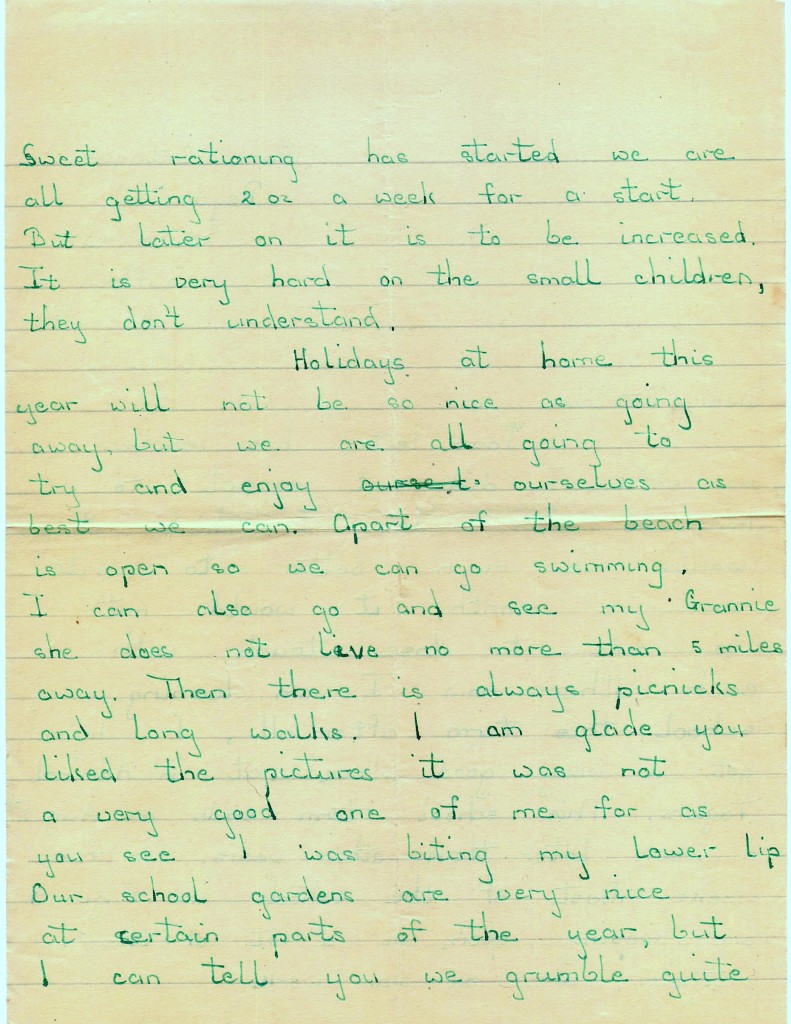 Sweet rationing has started we are
all getting 2 oz a week for a start.
But later on it is to be increased.
It is very hard on the small children,
they don't understand.
Holidays at home this
year will not be so nice as going
away, but we are all going to
try and enjoy ourselves as
best we can. Apart of the beach
is open so we can go swimming.
I can also go and see my Grannie
she does not live no more than 5 miles
away. Then there is always picnicks
and long walks. I am glade you
liked the pictures it was not
a very good one of me for as
you see I was biting my lower lip
Our school gardens are very nice
at certain parts of the year, but
I can tell you we grumble quite